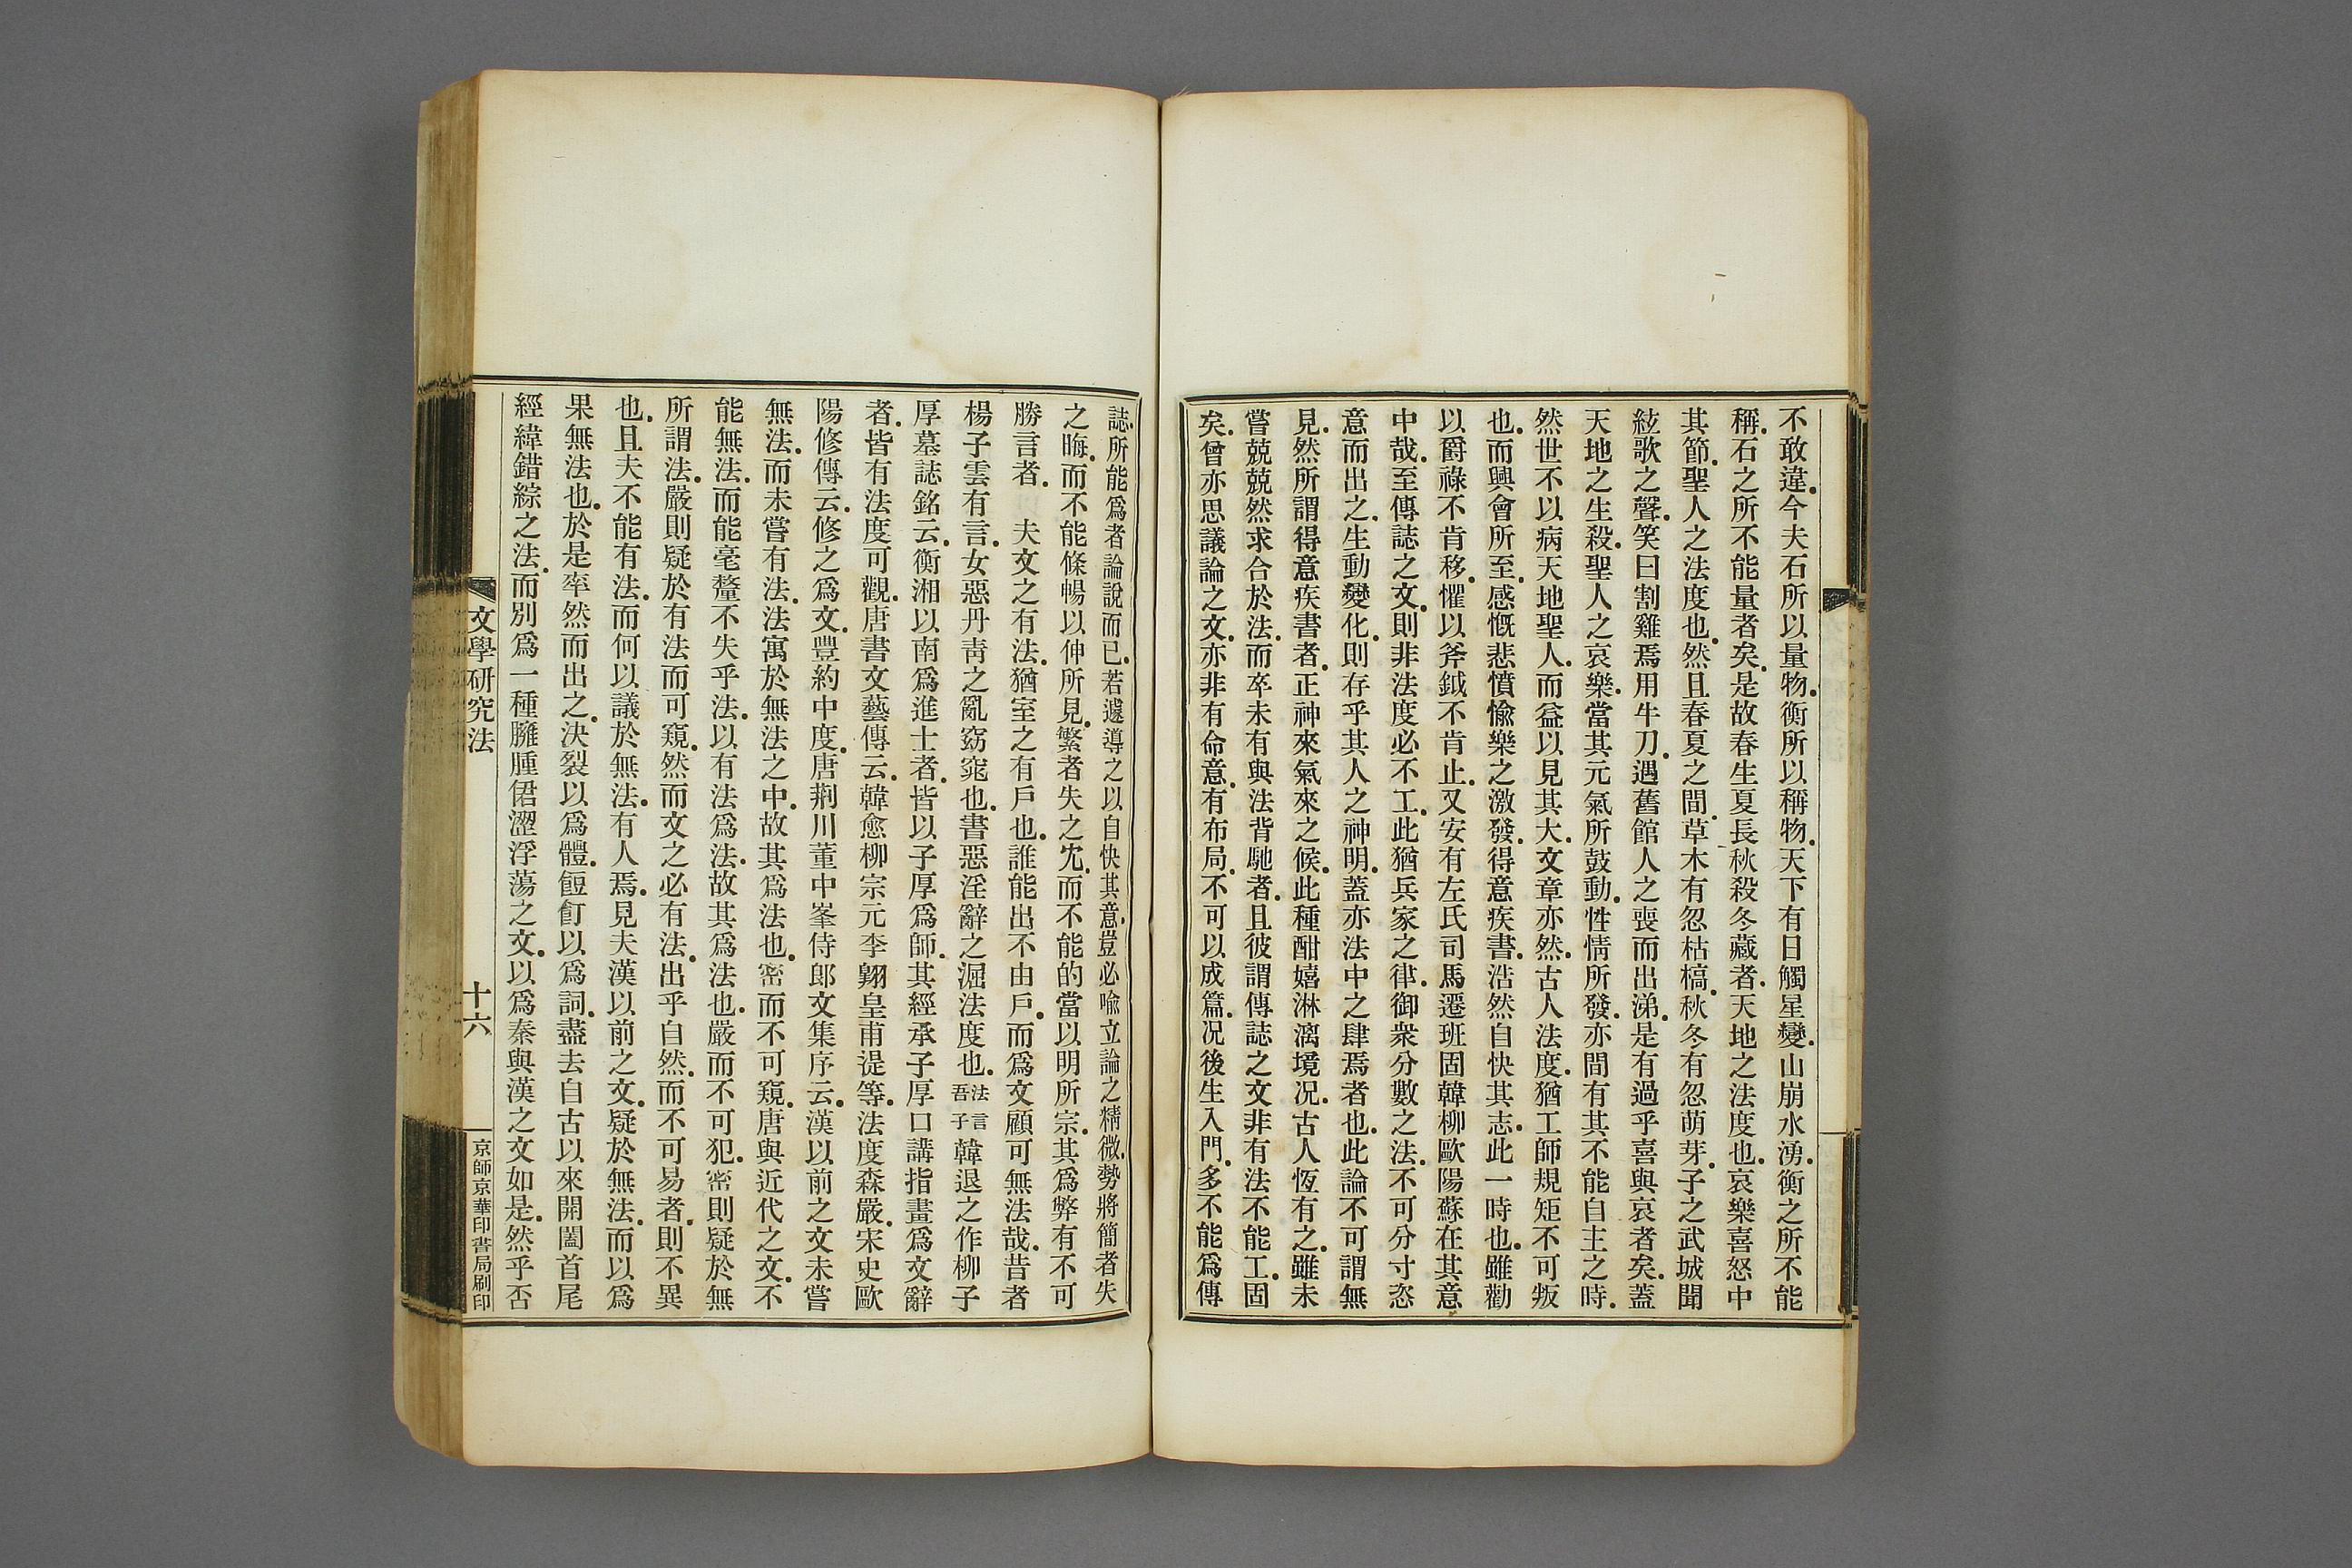 不敢違.今夫石所以量物.衡所以稱物.天下有日觸星變.山崩水湧.衡之所不能
稱.石之所不能量者矣.是故春生夏長秋殺冬藏者.天地之法度也.哀樂喜怒中
其節.聖人之法度也.然且春夏之間.草木有忽枯槁.秋冬有忽萌芽.子之武城聞
絃歌之聲.笑曰割雞焉用牛刀.遇舊館人之喪而出涕.是有過乎喜與哀者矣.蓋
天地之生殺.聖人之哀樂.當其元氣所鼓動.性情所發.亦間有其不能自主之時.
然世不以病天地聖人.而益以見其大.文章亦然.古人法度.猶工師規矩不可叛
也.而興會所至.感慨悲憤愉樂之激發.得意疾書.浩然自快其志.此一時也.雖勸
以爵祿不肯移.懼以斧鉞不肯止.又安有左氏司馬遷班固韓柳歐陽蘇在其意
中哉.至傳誌之文.則非法度必不工.此猶兵家之律.御衆分數之法.不可分寸恣
意而出之.生動變化.則存乎其人之神明.蓋亦法中之肆焉者也.此論不可謂無
見.然所謂得意疾書者.正神來氣來之候.此種酣嬉淋漓境况.古人恆有之.雖未
嘗兢兢然求合於法.而卒未有與法背馳者.且彼謂傳誌之文非有法不能工.固
矣.曾亦思議論之文.亦非有命意.有布局.不可以成篇.况後生入門.多不能爲傳
誌.所能爲者論說而已.若遽導之以自快其意.豈必喩立論之精微.勢將簡者失
之晦.而不能條暢以伸所見.繁者失之宂.而不能的當以明所宗.其爲弊有不可
勝言者.　夫文之有法.猶室之有戶也.誰能出不由戶.而爲文顧可無法哉.昔者
楊子雲有言.女惡丹靑之亂窈窕也.書惡淫辭之淈法度也.法言吾子韓退之作柳子
厚墓誌銘云.衡湘以南爲進士者.皆以子厚爲師.其經承子厚口講指畫爲文辭
者.皆有法度可觀.唐書文藝傳云.韓愈柳宗元李翺皇甫湜等.法度森嚴.宋史歐
陽修傳云.修之爲文.豐約中度.唐荆川董中峯侍郎文集序云.漢以前之文未嘗
無法.而未嘗有法.法寓於無法之中.故其爲法也.密而不可窺.唐與近代之文.不
能無法.而能毫釐不失乎法.以有法爲法.故其爲法也.嚴而不可犯.密則疑於無
所謂法.嚴則疑於有法而可窺.然而文之必有法.出乎自然.而不可易者.則不異
也.且夫不能有法.而何以議於無法.有人焉.見夫漢以前之文.疑於無法.而以爲
果無法也.於是率然而出之.決裂以爲體.餖飣以爲詞.盡去自古以來開闔首尾
經緯錯綜之法.而別爲一種臃腫侰澀浮蕩之文.以爲秦與漢之文如是.然乎否
文學研究法
十六
京師京華印書局刷印